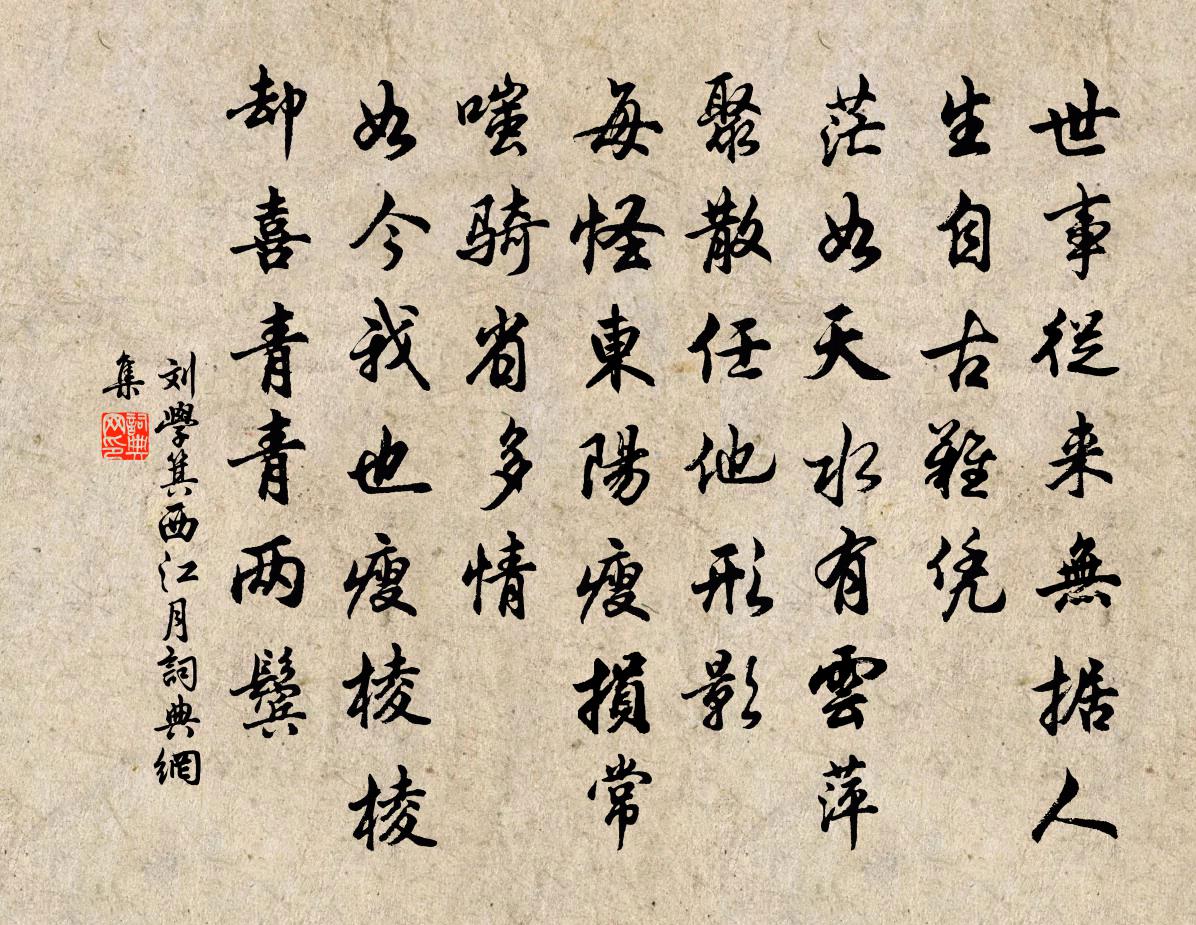 世事從来無据人
生自古難凭
茫如天水有雲萍
聚散任他形影
每怪東陽瘦損常
嗤騎省多情
如今我也瘦棱棱
却喜青青两鬓
刘學箕西江月詞典網
集
詞典
网印